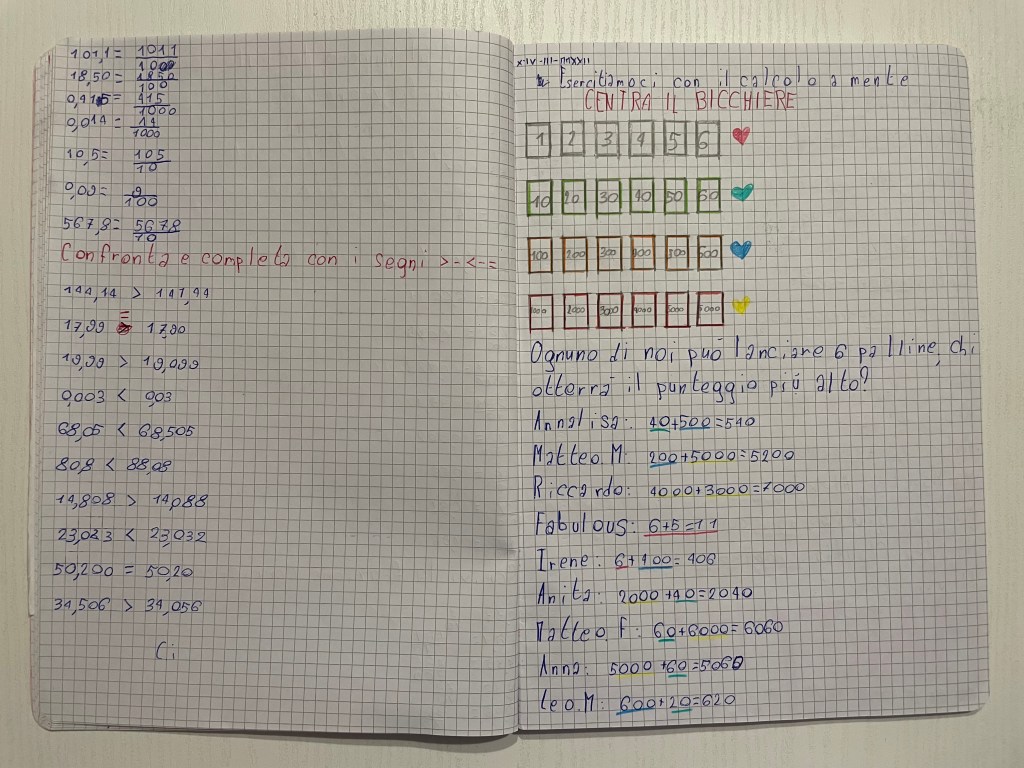 101,1 = 1011/1000
18,50 = 1850/100
0,415 = 415/1000
0,014 = 14/1000
10,5 = 105/10
0,09 = 9/100
567,8 = 5678/10
Confronta e completa con i segni >-<-=
17,99 = 17,90
19,99 > 19,099
0,003 < 0,03
68,05 < 68,505
80,8 < 88,08
14,808 > 14,088
23,023 < 23,032
50,200 = 50,20
34,506 > 34,056
Ci
Esercitiamoci con il calcolo a mente
CENTRA IL BICCHIERE
1 2 3 4 5 6
10 20 30 40 50 60
100 200 300 400 500 600
1000 2000 3000 4000 5000 6000
Ognuno di noi può lanciare 6 palline, chi
otterrà il punteggio più alto?
Annalisa: 40+500=540
Matteo.M: 200+5000=5200
Riccardo: 4000+3000=7000
Fabulous: 6+5=11
Irene: 6+400=406
Anita: 2000+40=2040
Matteo.F: 60+6000=6060
Anna: 5000+60=5060
Leo.M: 600+20=620